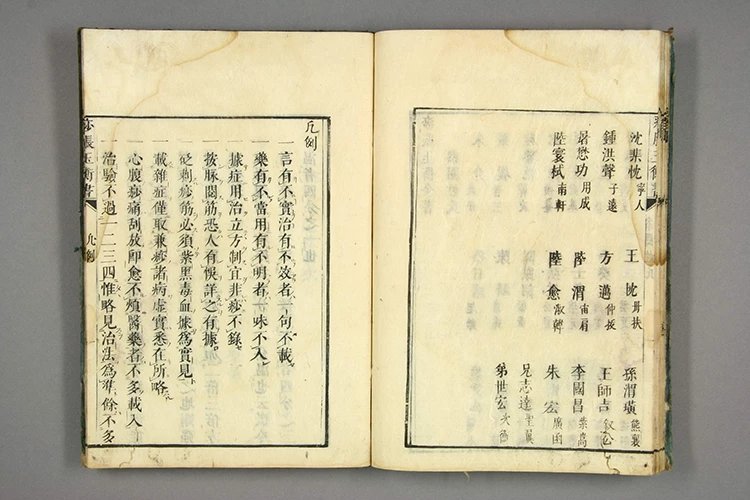 沈棐忱 寧人 王 忱 丹扶 孫渭璜 熊襄
鍾洪聲 子遠 方 邁 仲振 王師吉 叙公
屠懋功 用成 陸士渭 李國昌 紫高
陸寰栻 南軒 陸 愈 淑韓 朱 宏 廣函
兄志達 聖翼
弟世宏
凡例
一言有不實治有不效者一句不載
一藥有不當用有不明者一味不入
一據症用治立方制宜非痧不錄
一按脉閱筋恐人有悞詳之有據
一砭刺痧筋必須紫黑毒血據爲實見
一載雜症僅取兼痧諸病虛實悉在所略
一心腹痧痛刮放即愈不煩醫藥者不多載入
一治驗不過一二三四惟略見治法爲準餘不多
痧脹玉衡書 凡例